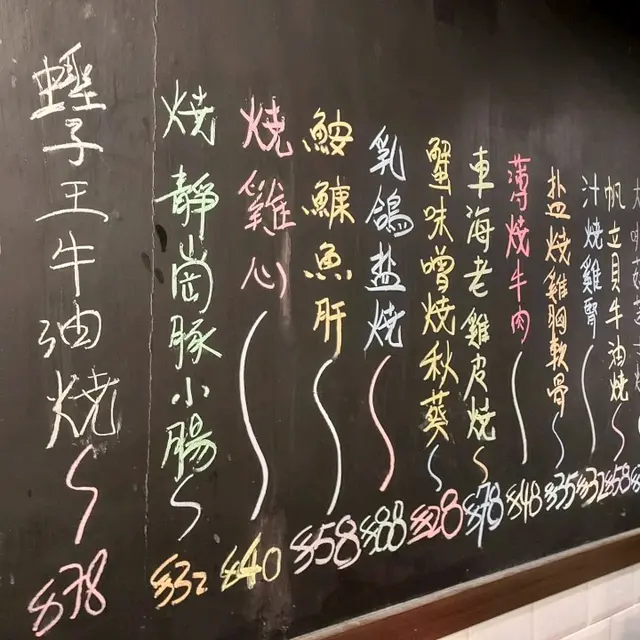 蟶子王牛油燒 $78
燒靜崗豚小腸 $32
燒雞心 $40
鮟鱇魚肝 $58
乳鴿盐燒 $88
蟹味噌燒秋葵 $28
車海老雞皮燒 $78
薄燒牛肉 $48
盐燒雞胸軟骨 $35
汁燒雞腎 $32
帆立貝牛油燒 $58